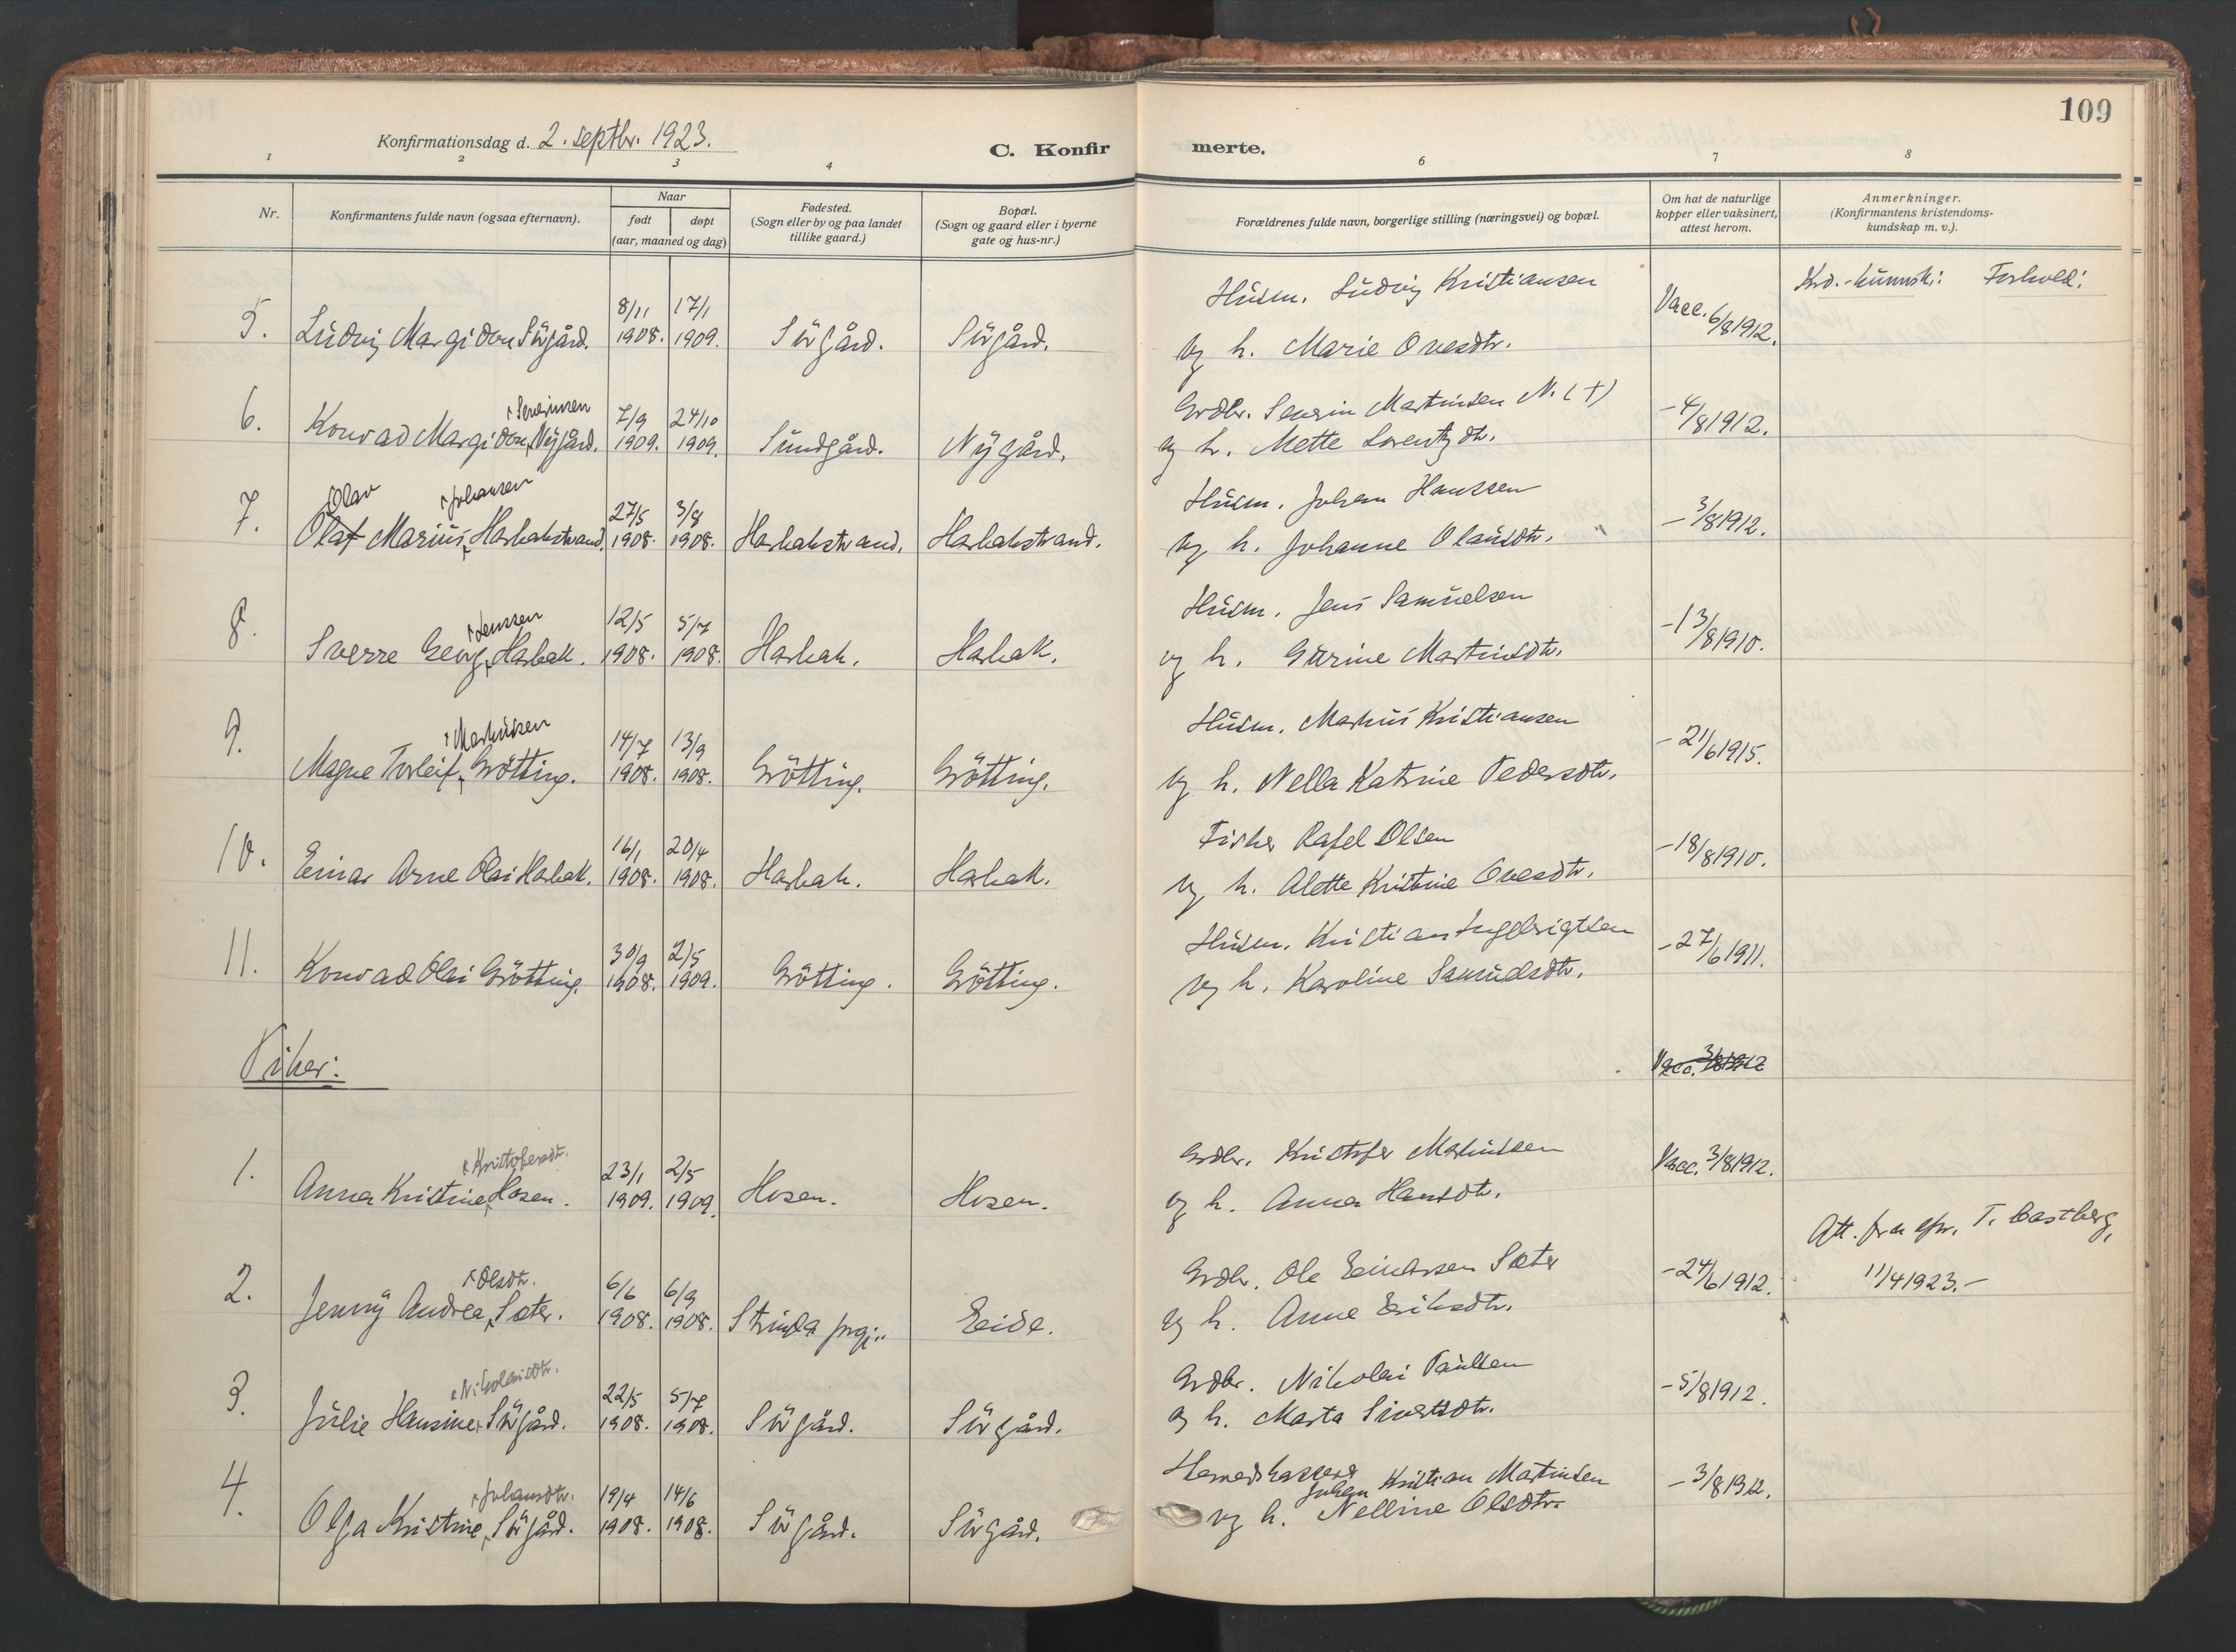 109
Konfirmationsdag d. 2. septbr. 1923.
C. Konfirmerte.
1 2 3 4 6 7 8
Nr.
Konfirmantens fulde navn (ogsaa efternavn).
Naar
født døpt
(aar, maaned og dag)
Fødested.
(Sogn eller by og paa landet
tillike gaard.)
Bopæl.
(Sogn og gaard eller i byerne
gate og hus-nr.)
Forældrenes fulde navn, borgerlige stilling (næringsvei) og bopæl.
Om hat de naturlige
kopper eller vaksinert,
attest herom.
Anmerkninger.
(Konfirmantens kristendoms-
kundskap m. v.).
Krd.-kunnsk: Forhold:
8/11 17/1 Husm. Ludvig Kristiansen Vacc. 6/8 1912.
5. Ludvig Margidon Sörgård. 1908. 1909. Sörgård. Sörgård. og h. Marie Ovesdtr.
Severinsen 7/9 24/10 Grdbr. Severin Martinsen N. (†) - 4/8 1912.
6. Konrad Margidon Nygård. 1909. 1909. Sundgård. Nygård. og h. Mette Lorentzdtr.
Olav Johansen 27/5 3/8 Husm. Johan Hanssen - 3/8 1912.
7. Olaf Marius Harbakstrand. 1908. 1908. Harbakstrand. Harbakstrand. og h. Johanne Olausdtr.
Jenssen 12/5 5/7 Husm. Jens Samuelsen - 13/8 1910.
8. Sverre Georg Harbak. 1908. 1908. Harbak. Harbak. og h. Gurine Martinsdtr.
Markussen 14/7 13/9 Husm. Markus Kristiansen - 21/6 1915.
9. Magne Torleif Grötting. 1908. 1908. Grötting. Grötting. og h. Nella Katrine Pedersdtr.
16/1 20/4 Fisker Rafel Olsen - 18/8 1910.
10. Einar Arne Olai Harbak. 1908. 1908. Harbak. Harbak. og h. Alette Kristine Ovesdtr.
30/9 2/5 Husm. Kristian Ingebrigtsen - 27/6 1911.
11. Konrad Olai Grötting. 1908. 1909. Grötting. Grötting. og h. Karoline Samuelsdtr.
Piker: Vacc. 3/8 1912
Kristofersdtr. 23/1 2/5 Grdbr. Kristofer Markussen Vacc. 3/8 1912.
1. Anna Kristine Hosen. 1909. 1909. Hosen. Hosen. og h. Anna Hansdtr.
Att. fra spr. T. Castberg,
Olsdtr. 6/6 6/9 Grdbr. Ole Einarsen Sæter - 24/6 1912. 11/4 1923. -
2. Jenny Andrea Sæter. 1908. 1908. Strinda prgj. Eide. og h. Anne Eriksdtr.
Nikolaisdtr. 22/5 5/7 Grdbr. Nikolai Paulsen - 5/8 1912.
3. Julie Hansine Sörgård. 1908. 1908. Sörgård. Sörgård. og h. Marta Sivertsdtr.
Johansdtr. 19/4 14/6 Herredskasserer Johan Kristian Martinsen - 3/8 1912.
4. Olga Kristine Sörgård. 1908. 1908. Sörgård. Sörgård. og h. Nelline Olsdtr.